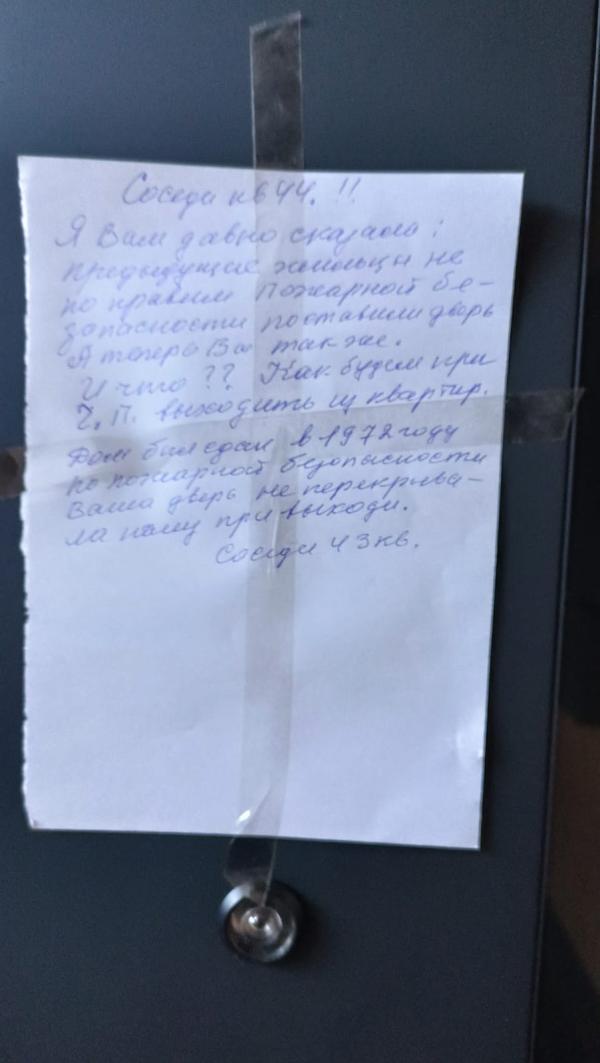 Соседи кв 44. !!
Я Вам давно сказала:
предыдущие жильцы не
по правилам Пожарной бе-
запасности поставили дверь
А теперь Вы так же.
И что ?? Как будем при
Ч. П. выходить из квартир.
Дом был сдан в 1972 году
по пожарной безопасности
Ваша дверь не перекрыва-
ла нашу при выходи.
Соседи 43 кв.